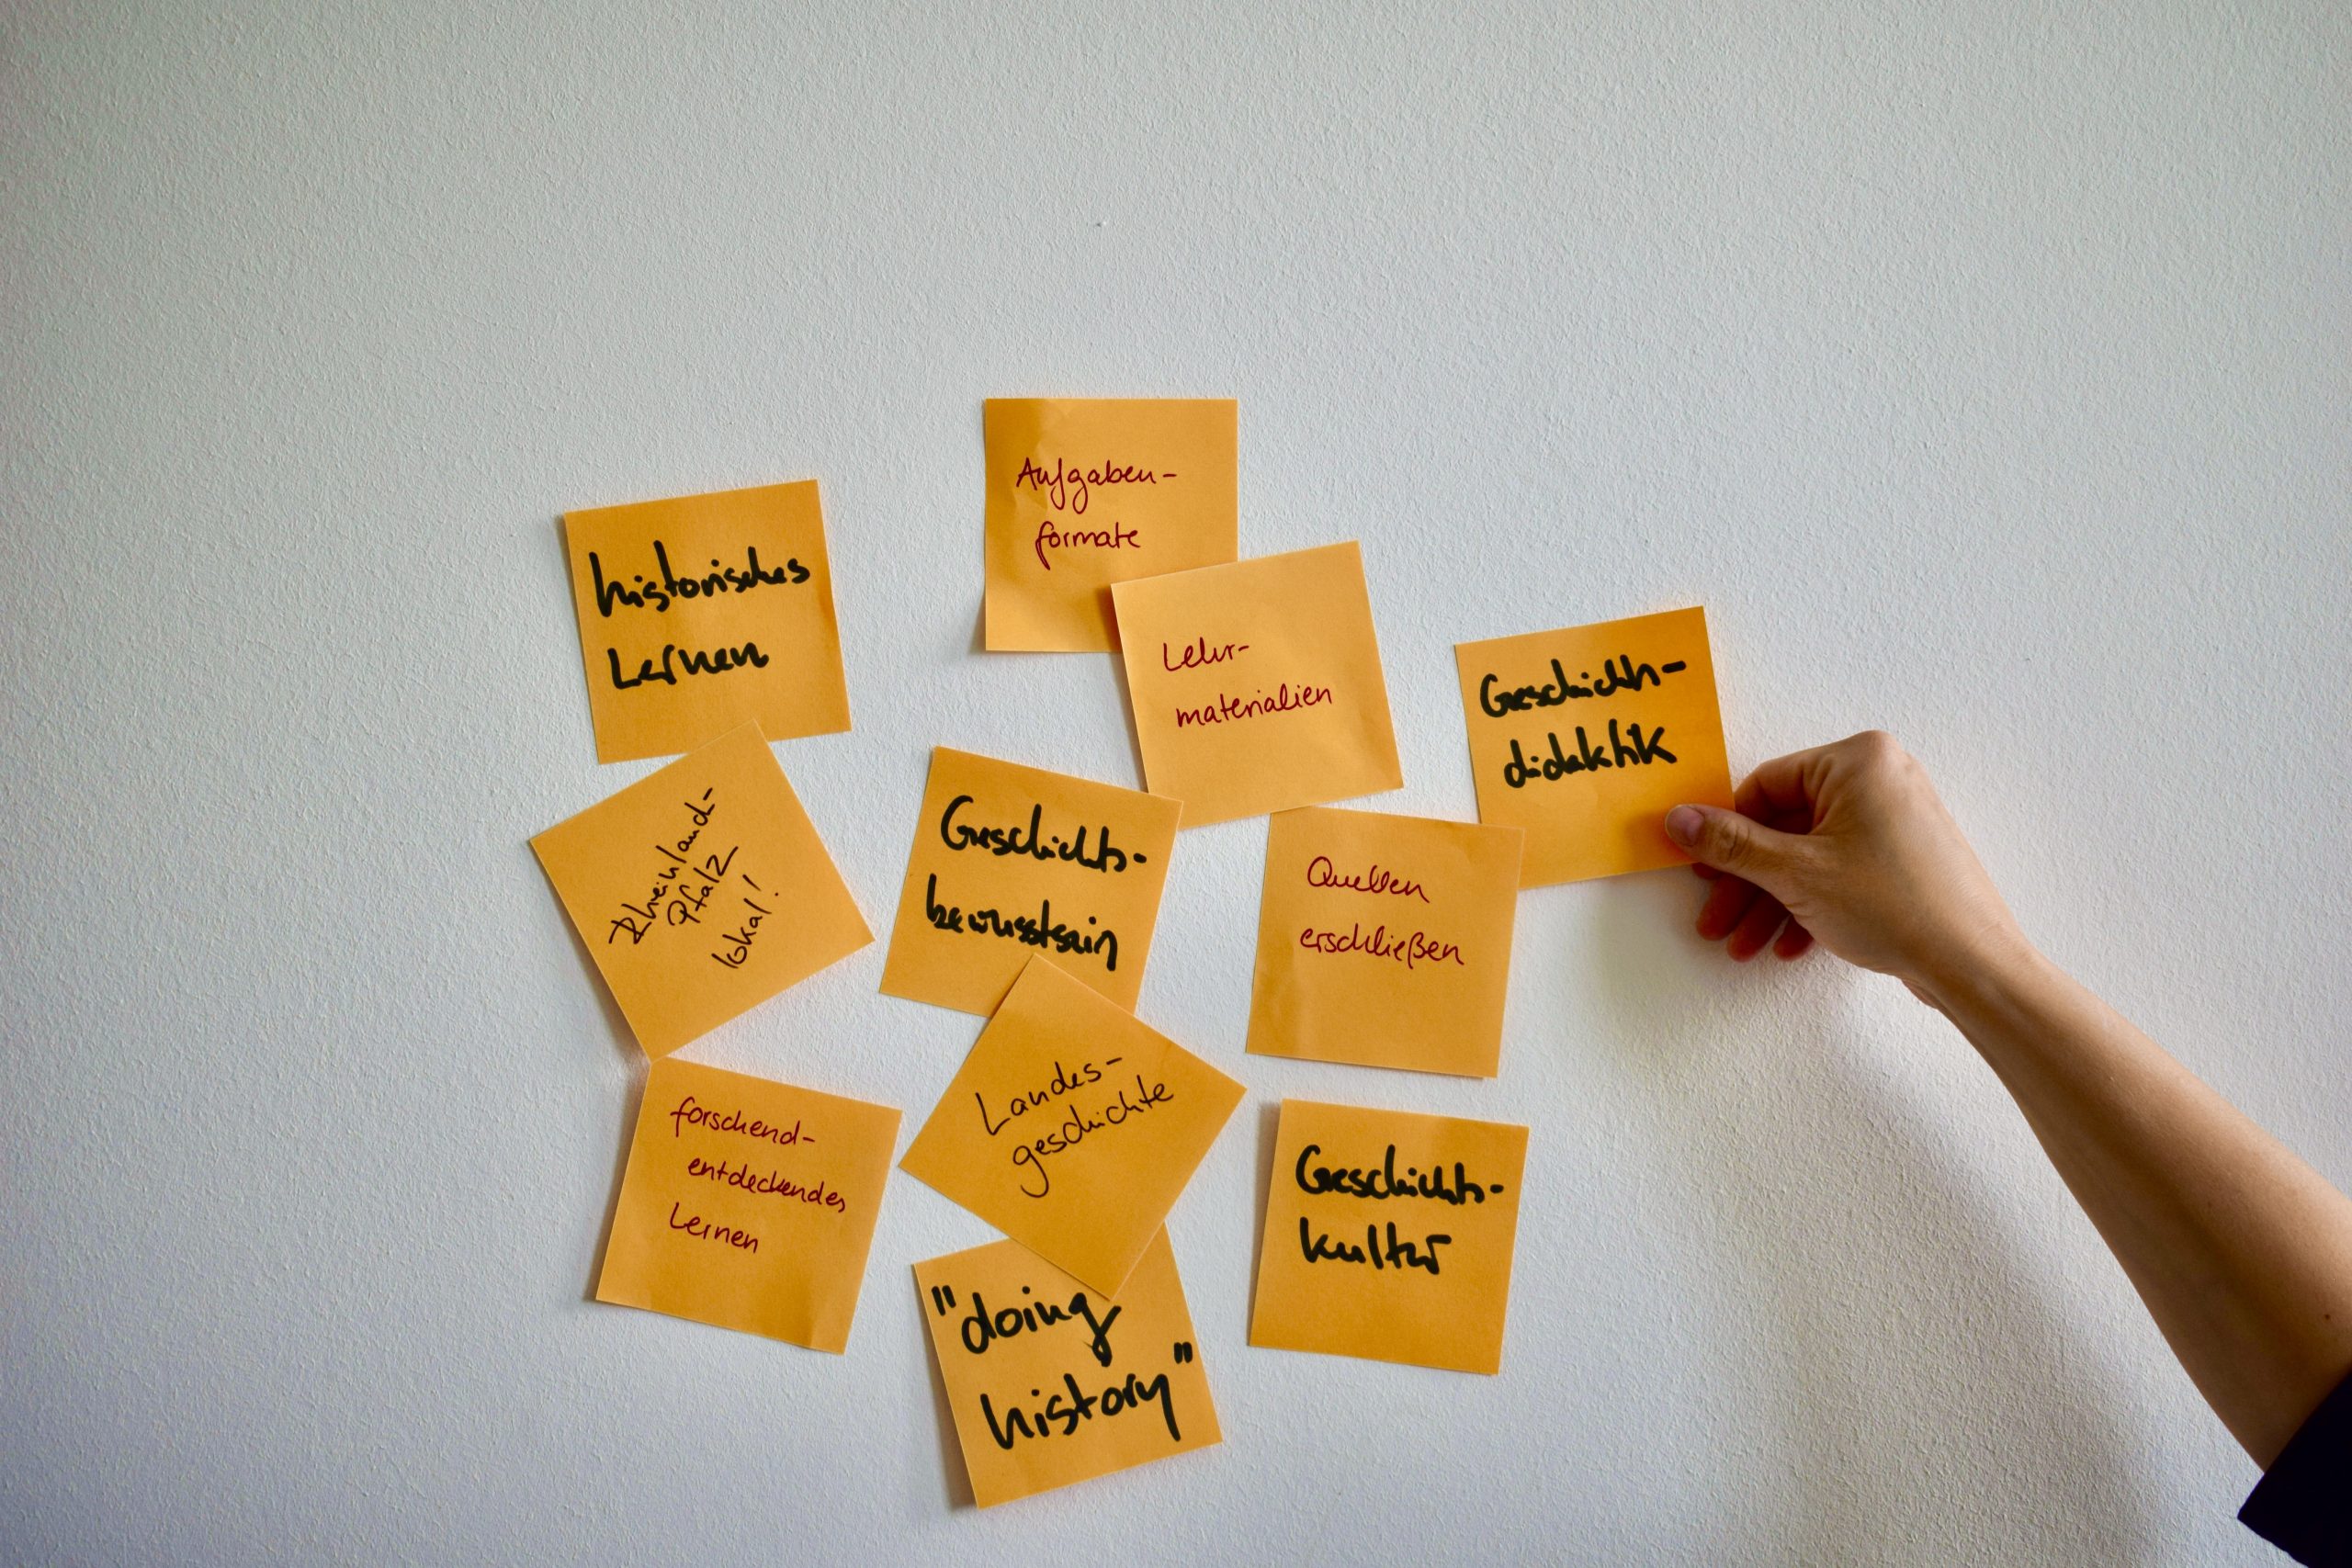 Aufgaben-
formate
historisches
Lernen
Lehr-
materialien
Geschichts-
didaktik
Rheinland-
Pfalz
lokal!
Geschichts-
bewusstsein
Quellen
erschließen
forschend-
entdeckendes
Lernen
Landes-
geschichte
Geschichts-
kultur
"doing
history"